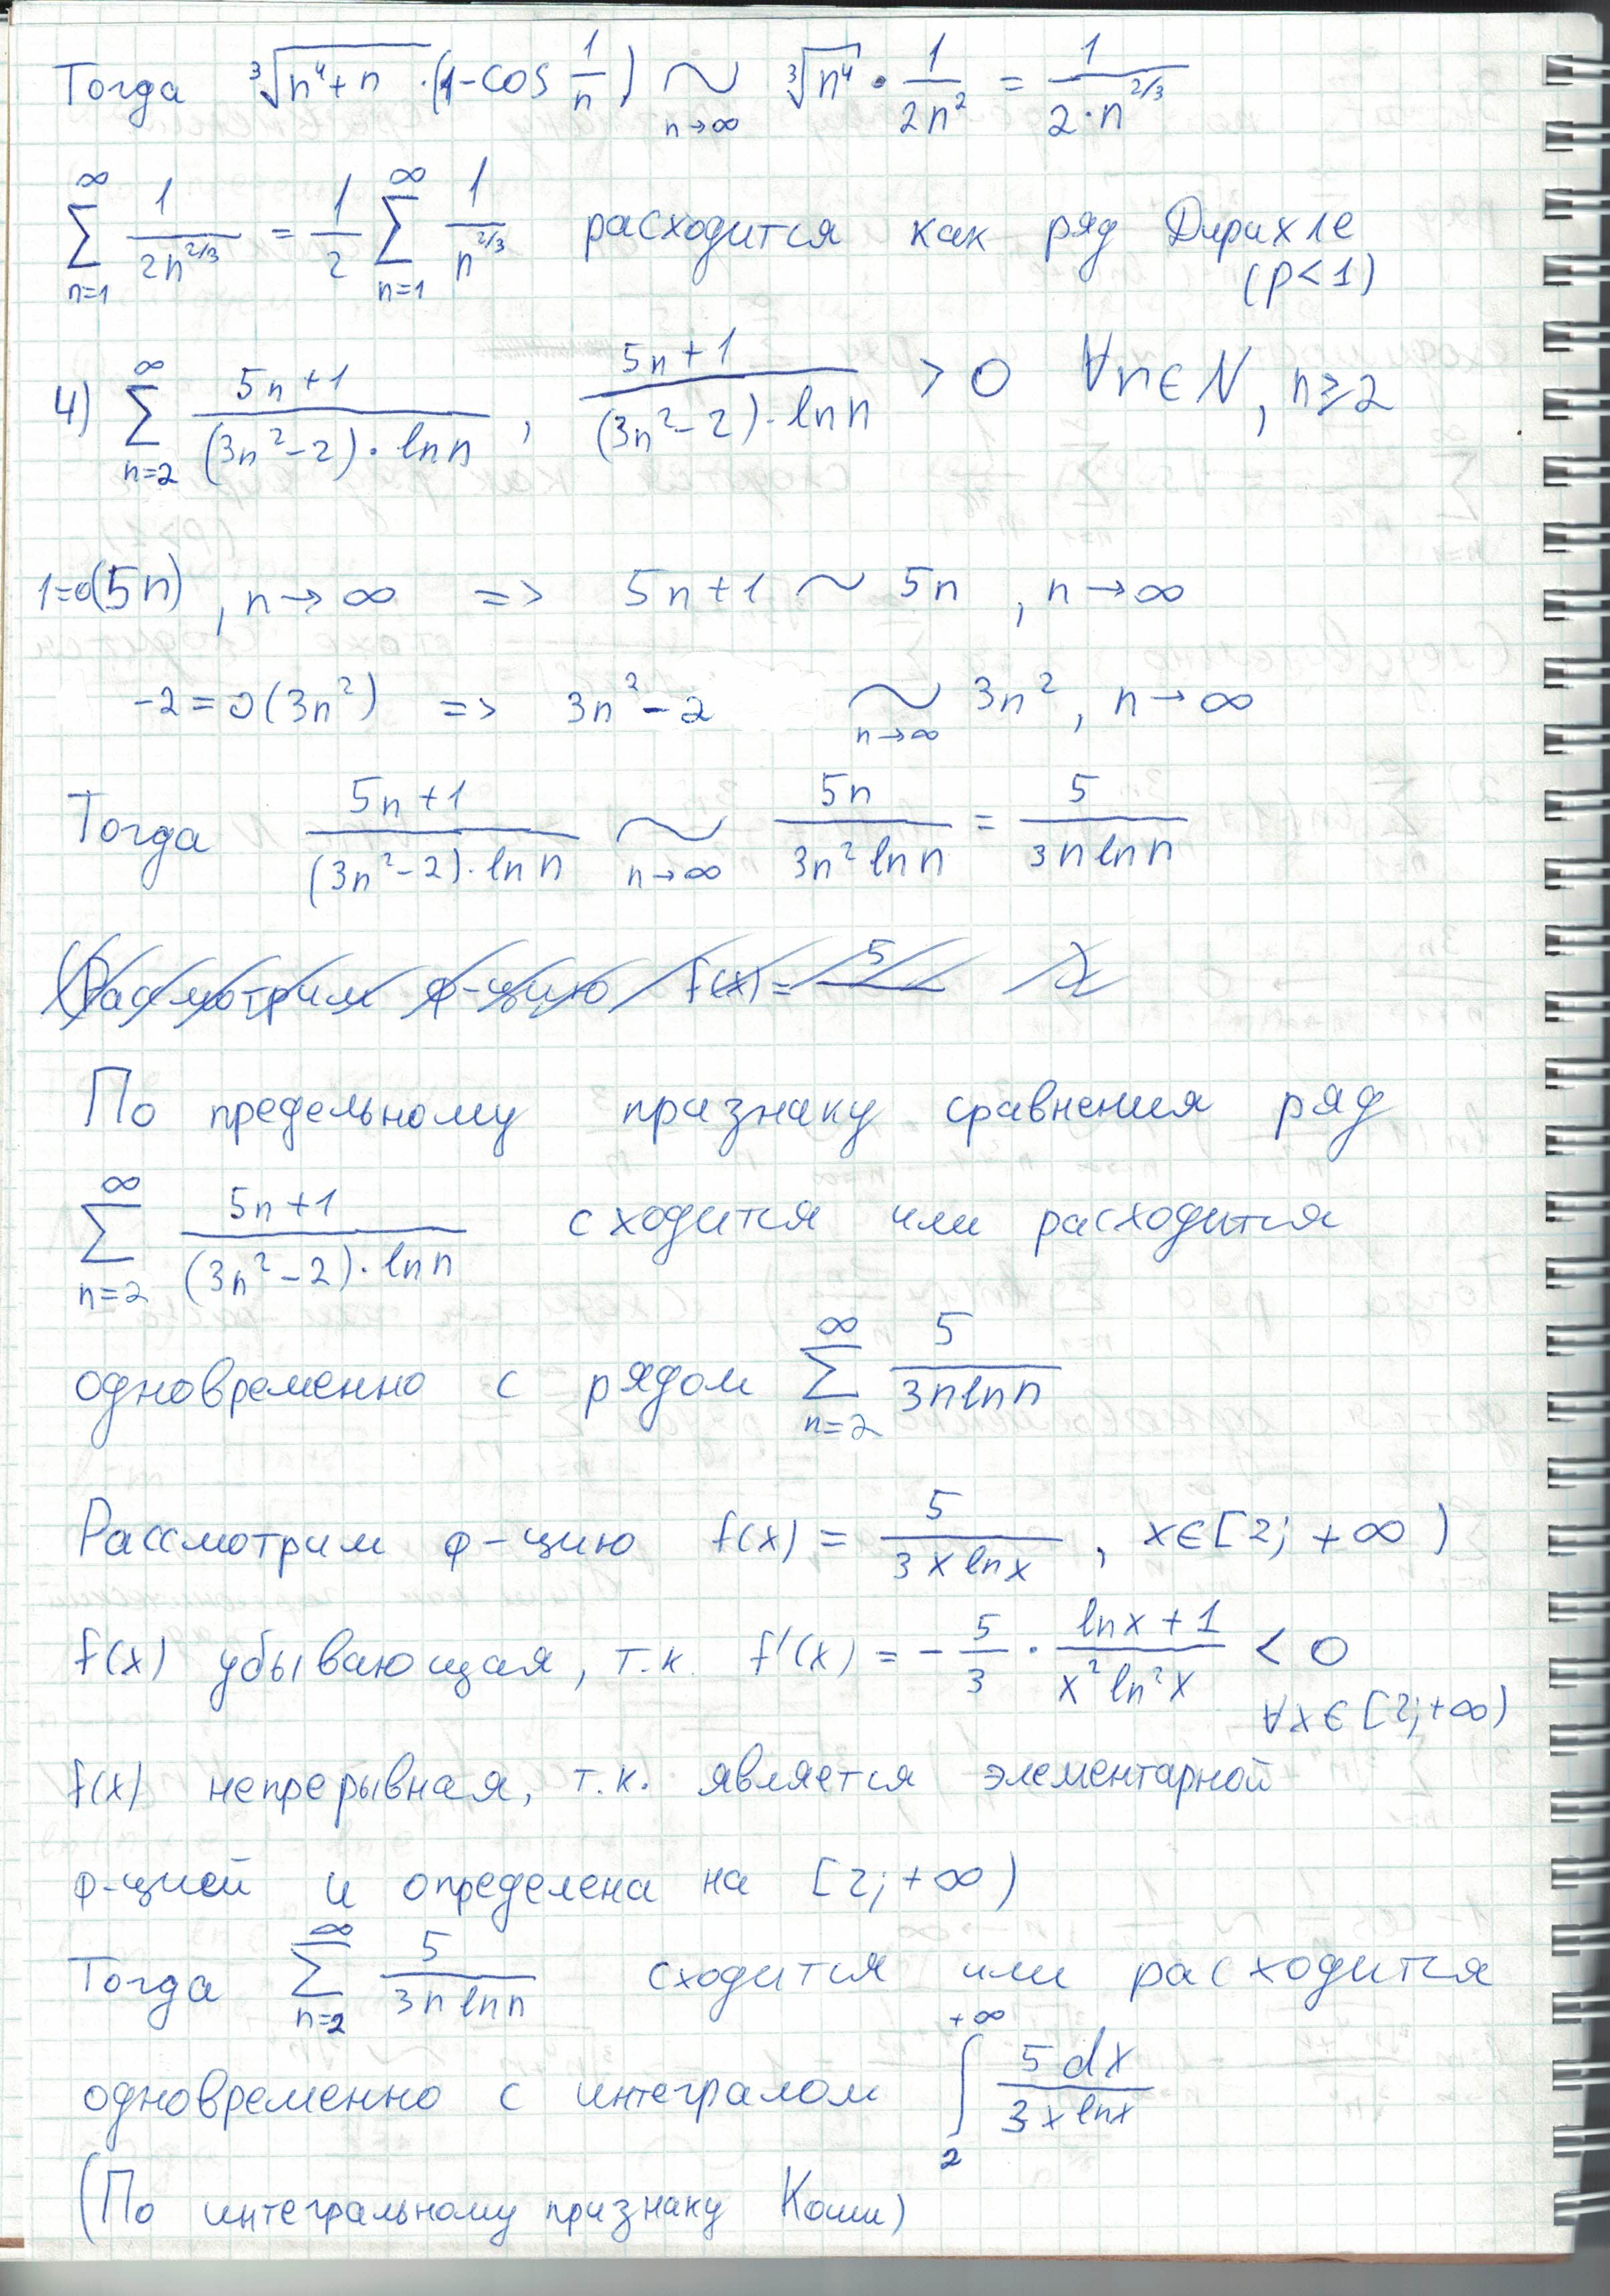 Тогда ∛(n⁴+n) · (1-cos 1/n) ~ n→∞ ∛(n⁴) · 1/(2n²) = 1/(2·n^(2/3))
∑ n=1 ∞ 1/(2n^(2/3)) = 1/2 ∑ n=1 ∞ 1/(n^(2/3)) расходится как ряд Дирихле
(p<1)
4) ∑ n=2 ∞ (5n+1)/((3n²-2)·ln n) , (5n+1)/((3n²-2)·ln n) > 0 ∀n∈N, n≥2
1=o(5n) , n→∞ => 5n+1 ~ 5n , n→∞
-2=o(3n²) => 3n²-2 ~ n→∞ 3n², n→∞
Тогда (5n+1)/((3n²-2)·ln n) ~ n→∞ 5n/(3n² ln n) = 5/(3n ln n)
Рассмотрим ф-цию f(x) = 5/
По предельному признаку сравнения ряд
∑ n=2 ∞ (5n+1)/((3n²-2)·ln n) сходится или расходится
одновременно с рядом ∑ n=2 ∞ 5/(3n ln n)
Рассмотрим ф-цию f(x) = 5/(3x ln x) , x∈[2; +∞)
f(x) убывающая, т.к. f'(x) = - 5/3 · (ln x + 1)/(x² ln² x) < 0
∀x∈[2;+∞)
f(x) непрерывная, т.к. является элементарной
ф-цией и определена на [2;+∞)
Тогда ∑ n=2 ∞ 5/(3n ln n) сходится или расходится
одновременно с интегралом ∫ 2 +∞ 5dx/(3x ln x)
(По интегральному признаку Коши)